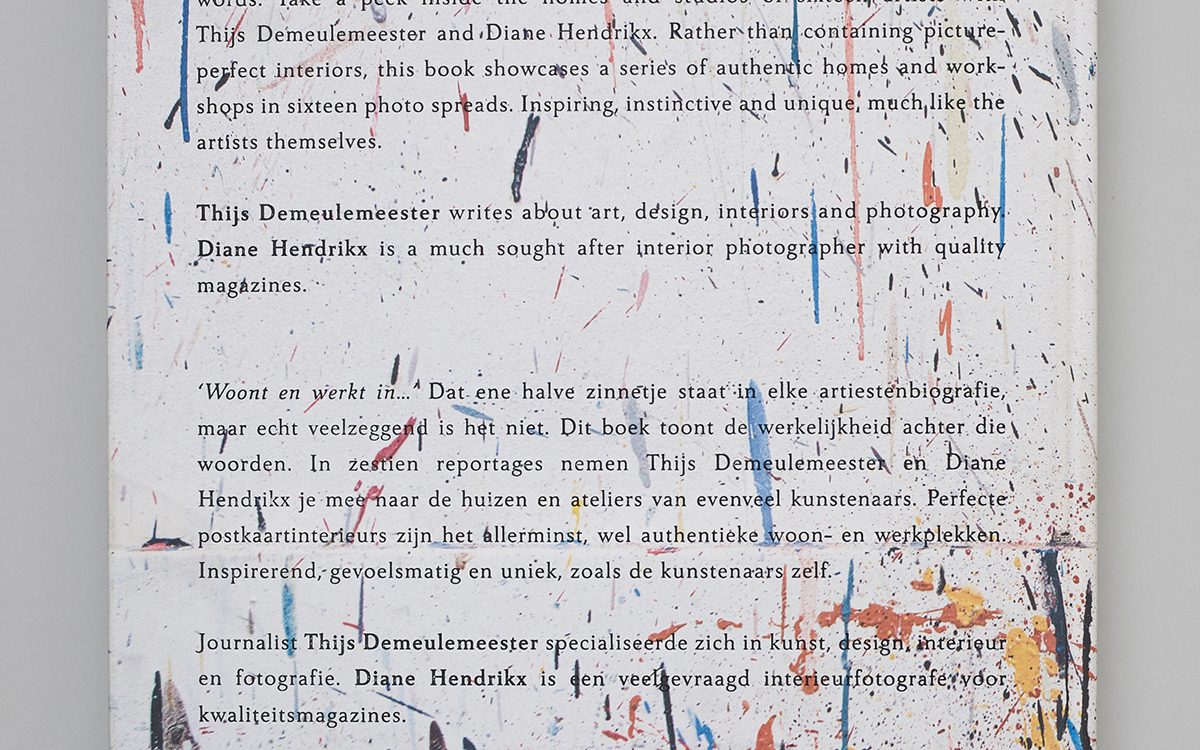 words. Take a peek inside the homes and studios of sixteen artists with
Thijs Demeulemeester and Diane Hendrikx. Rather than containing picture-
perfect interiors, this book showcases a series of authentic homes and work-
shops in sixteen photo spreads. Inspiring, instinctive and unique, much like the
artists themselves.
Thijs Demeulemeester writes about art, design, interiors and photography.
Diane Hendrikx is a much sought after interior photographer with quality
magazines.
‘Woont en werkt in...’ Dat ene halve zinnetje staat in elke artiestenbiografie,
maar echt veelzeggend is het niet. Dit boek toont de werkelijkheid achter die
woorden. In zestien reportages nemen Thijs Demeulemeester en Diane
Hendrikx je mee naar de huizen en ateliers van evenveel kunstenaars. Perfecte
postkaartinterieurs zijn het allerminst, wel authentieke woon- en werkplekken.
Inspirerend, gevoelsmatig en uniek, zoals de kunstenaars zelf.
Journalist Thijs Demeulemeester specialiseerde zich in kunst, design, interieur
en fotografie. Diane Hendrikx is een veelgevraagd interieurfotografe voor
kwaliteitsmagazines.